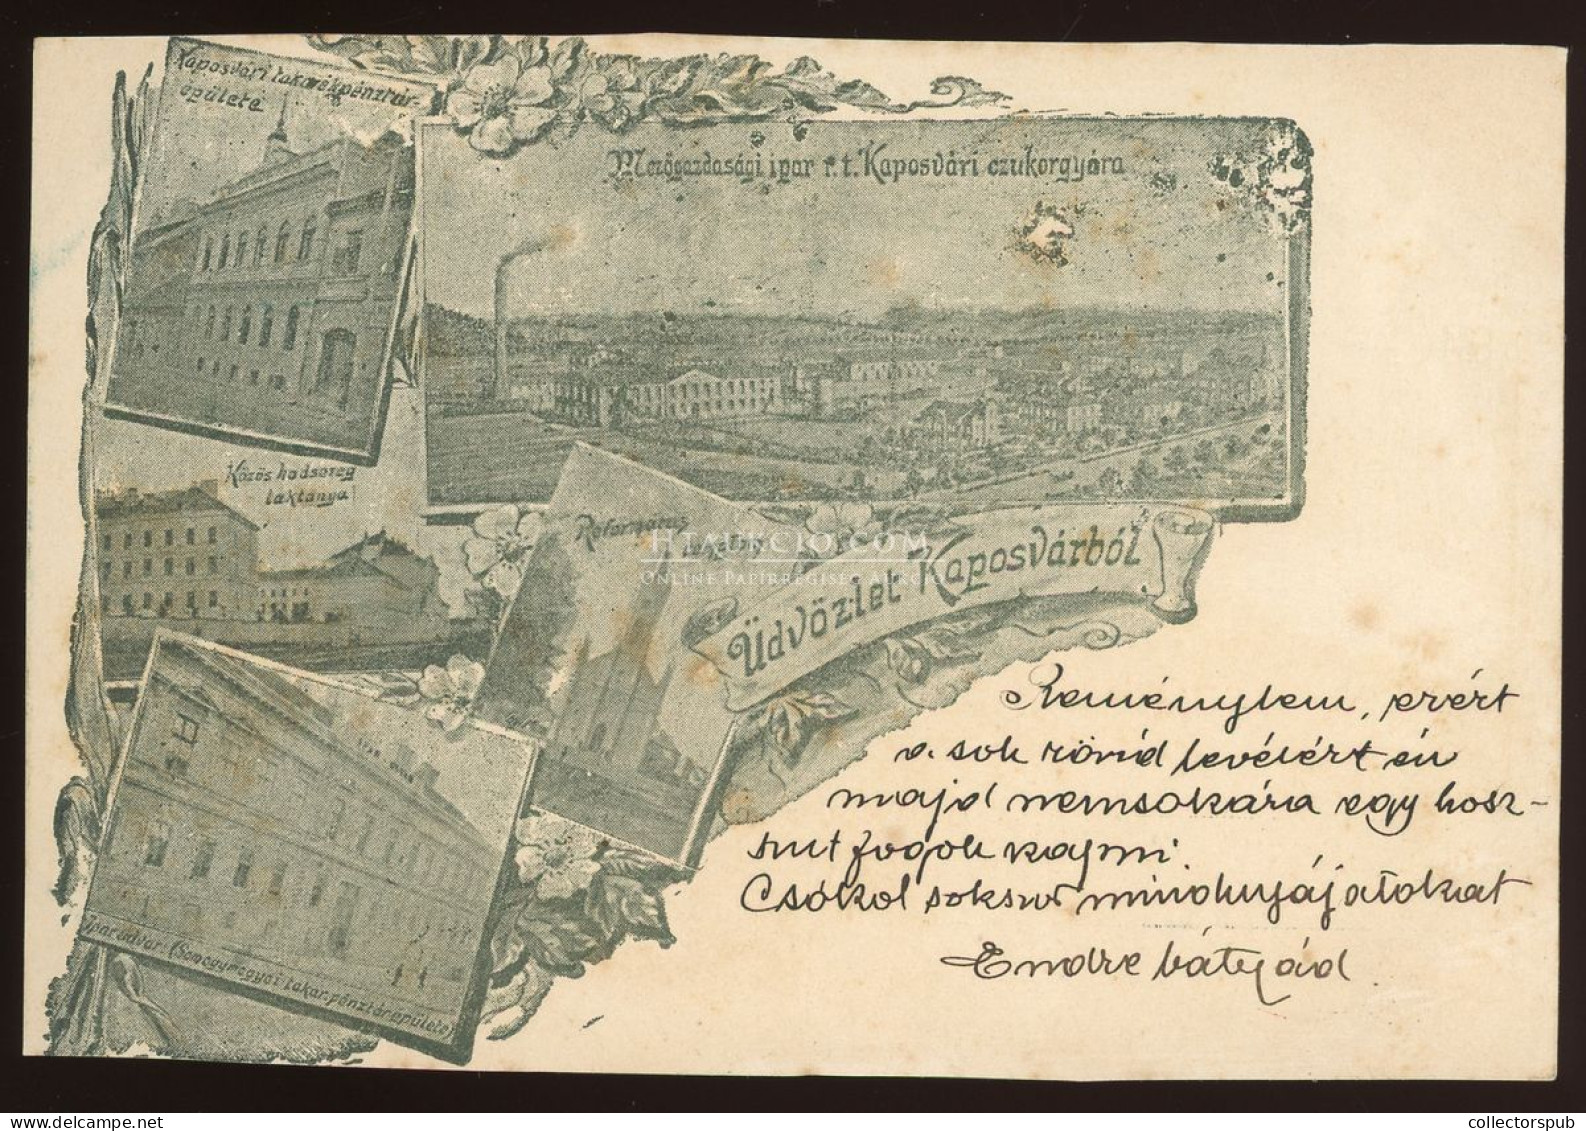 Kaposvári takarékpénztár-
épülete
Mezőgazdasági ipar r.t. Kaposvári czukorgyára
Közös hadsereg
laktanya
Református
templom
HTAJECIO.COM
ONLINE PAPÍRRÉGISÉG
Üdvözlet Kaposvárból
Iparudvar (Somogymegyei takar.pénztár épülete)
Reménylem, ezért
a sok rövid levélért én
majd nemsokára egy hosz-
szut fogok kapni.
Csókol sokszor mindnyájatokat
Endre bátyád.
collectorspub